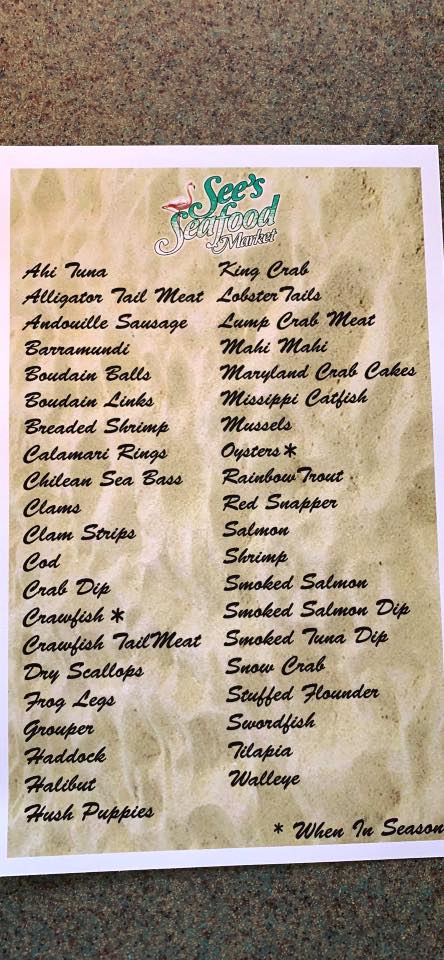 See's
Seafood
Market
Ahi Tuna
Alligator Tail Meat
Andouille Sausage
Barramundi
Boudain Balls
Boudain Links
Breaded Shrimp
Calamari Rings
Chilean Sea Bass
Clams
Clam Strips
Cod
Crab Dip
Crawfish *
Crawfish TailMeat
Dry Scallops
Frog Legs
Grouper
Haddock
Halibut
Hush Puppies
King Crab
LobsterTails
Lump Crab Meat
Mahi Mahi
Maryland Crab Cakes
Missippi Catfish
Mussels
Oysters*
RainbowTrout
Red Snapper
Salmon
Shrimp
Smoked Salmon
Smoked Salmon Dip
Smoked Tuna Dip
Snow Crab
Stuffed Flounder
Swordfish
Tilapia
Walleye
* When In Season